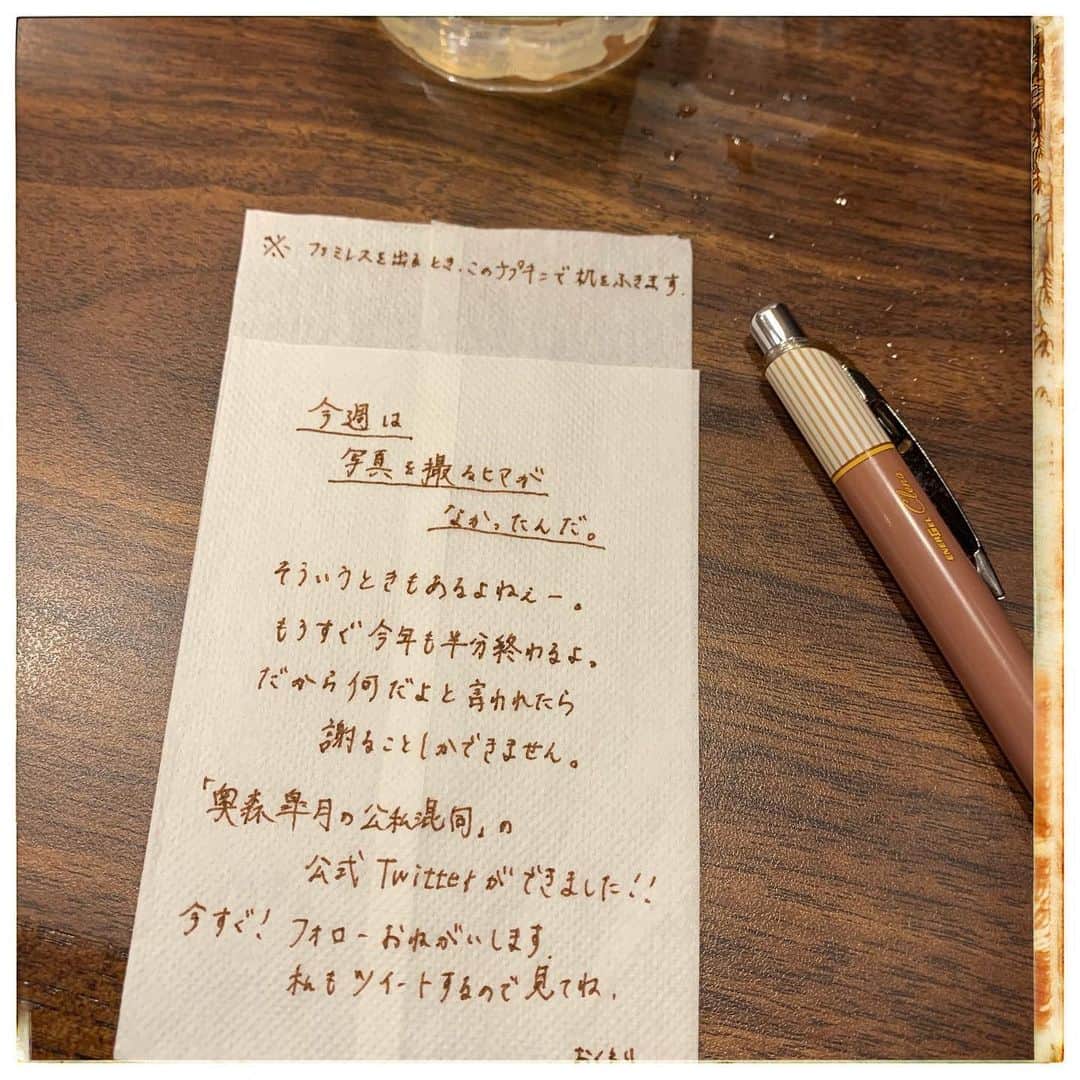 ※ ファミレスを出るとき、このナプキンで机をふきます.
今週は
写真を撮るヒマが
なかったんだ。
そういうときもあるよねぇー。
もうすぐ今年も半分終わるよ。
だから何だよと言われたら
謝ることしかできません。
「奥森皐月の公私混同」の
公式Twitterができました!!
今すぐ! フォローおねがいします.
私もツイートするので見てね.
おくもり
ENERGEL Clena